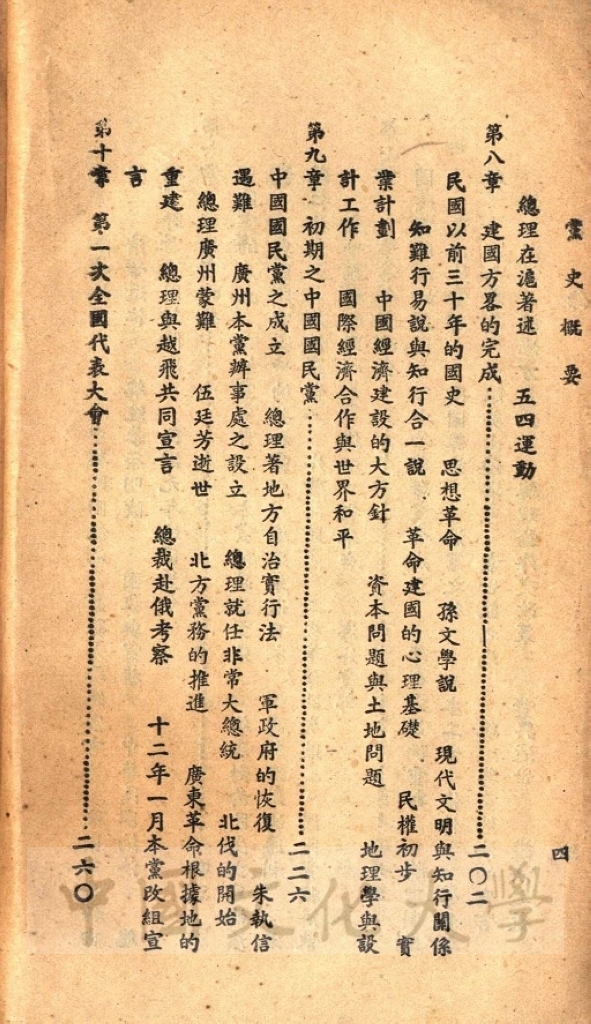 黨史概要
四
總理在滬著述　五四運動
第八章　建國方畧的完成……二〇二
民國以前三十年的國史　思想革命　孫文學說　現代文明與知行關係
知難行易說與知行合一說　革命建國的心理基礎　民權初步　實
業計劃　中國經濟建設的大方針　資本問題與土地問題　地理學與設
計工作　國際經濟合作與世界和平
第九章　初期之中國國民黨……二二六
中國國民黨之成立　總理著地方自治實行法　軍政府的恢復　朱執信
遇難　廣州本黨辦事處之設立　總理就任非常大總統　北伐的開始
總理廣州蒙難　伍廷芳逝世　北方黨務的推進　廣東革命根據地的
重建　總理與越飛共同宣言　總裁赴俄考察　十二年一月本黨改組宣
言
第十章　第一次全國代表大會……二六〇
中國文化大學